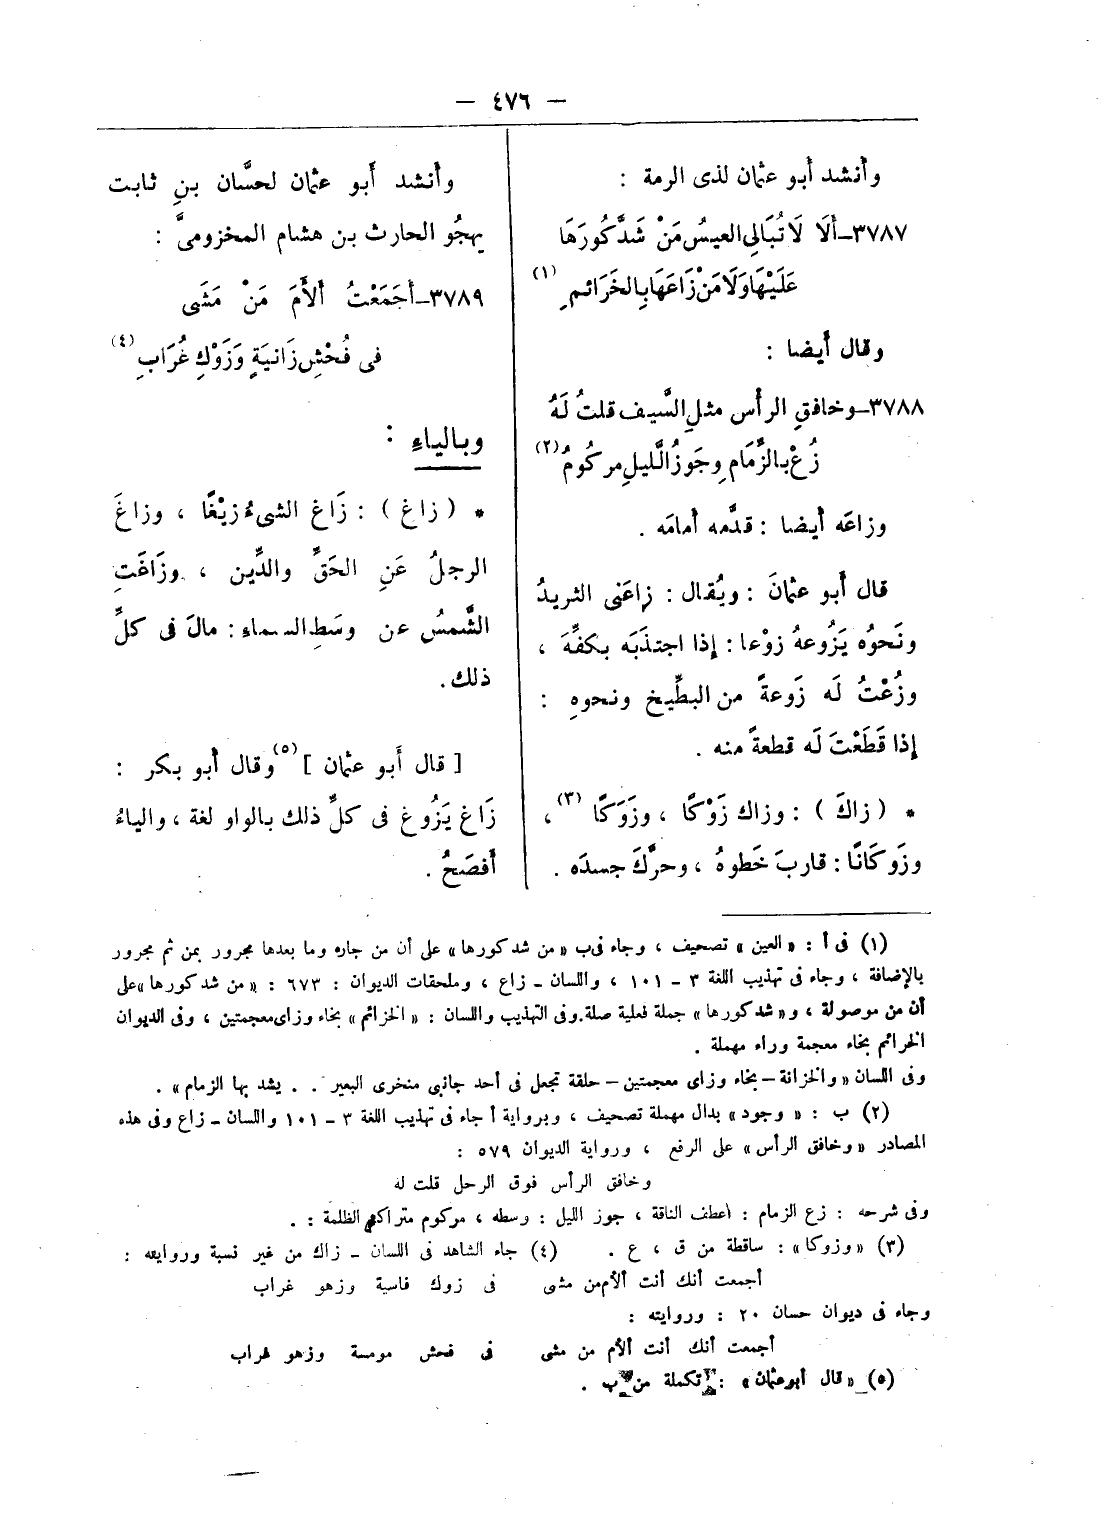 — ٤٧٦ —
وأنشد أبو عثمان لذى الرمة :
٣٧٨٧–ألَا لَا تُبَالِى العيسُ مَنْ شَدَّ كُورَهَا
عَلَيْهَا وَلَا مَنْ زَاعَهَا بِالخَرَائم ِ (١)
وقال أيضا :
٣٧٨٨–وخافقِ الرأس مثلِ السَّيف قلتُ لَهُ
زُعْ بالزِّمَامِ وجَوزُ الَّليلِ مركُومُ (٢)
وزاعَه أيضا : قدَّمه أمامَه .
قال أبو عثمانَ : ويُقال : زاعَنى الثريدُ
ونَحوُه يَزُوعهُ زوْعا : إذا اجتذَبَه بكفِّهَ ،
وزُعْتُ لَه زَوعةً من البطِّيخ ونحوهِ :
إذا قَطَعْتَ لَه قطعةً منه .
* ( زاكَ ) : وزاك زَوْكًا ، وزَوَكًا (٣) ،
وزَوَكَانًا : قاربَ خَطوهُ ، وحرَّكَ جسدَه .
وأنشد أبو عثمان لحسَّان بنِ ثابت
يهجُو الحارث بن هشام المخزومىَّ :
٣٧٨٩–أجَمَعْتُ ألأَمَ مَنْ مَشَى
فى فُحْشِ زَانيَةٍ وَزَوْكِ غُرَابِ (٤)
وبالياءِ :
* ( زاغ ) : زَاغ الشىءُ زيْغًا ، وزاغَ
الرجلُ عَنِ الحَقِّ والدِّين ، وزَاغَتِ
الشَّمسُ عن وسَطِ السماءِ : مالَ فى كلِّ
ذلك .
[ قال أَبو عثمان ] (٥) وقال أبو بكر :
زَاغ يَزُوغ فى كلِّ ذلك بالواو لغة ، والياءُ
أفصَحُ .
(١) فى أ : « العين » تصحيف ، وجاء فى ب « من شد كورها » على أن من جاره وما بعدها مجرور بمن ثم مجرور
بالإضافة ، وجاء فى تهذيب اللغة ٣ – ١٠١ ، واللسان – زاع ، وملحقات الديوان : ٦٧٣ : « من شد كورها » على
أن من موصولة ، و « شد كورها » جملة فعلية صلة . وفى التهذيب واللسان : « الخزائم » بخاء وزاى معجمتين ، وفى الديوان
الخرائم بخاء معجمة وراء مهملة .
وفى اللسان « والخزانة – بخاء وزاى معجمتين – حلقة تجعل فى أحد جانبى منخرى البعير . . يشد بها الزمام » .
(٢) ب : « وجود » بدال مهملة تصحيف ، وبرواية أ جاء فى تهذيب اللغة ٣ – ١٠١ واللسان – زاع وفى هذه
المصادر « وخافق الرأس » على الرفع ، ورواية الديوان ٥٧٩ :
وخافق الرأس فوق الرحل قلت له
وفى شرحه : زع الزمام : اعطف الناقة ، جوز الليل : وسطه ، مركوم متراكم الظلمة : .
(٣) « وزوكا » : ساقطة من ق ، ع . (٤) جاء الشاهد فى اللسان – زاك من غير نسبة وروايته :
أجمعت أنك أنت ألأم من مشى فى زوك فاسية وزهو غراب
وجاء فى ديوان حسان ٢٠ : وروايته :
أجمعت أنك أنت ألأم من مشى فى فحش مومسة وزهو غراب
(٥) « قال أبو عثمان » : تكملة من ب .